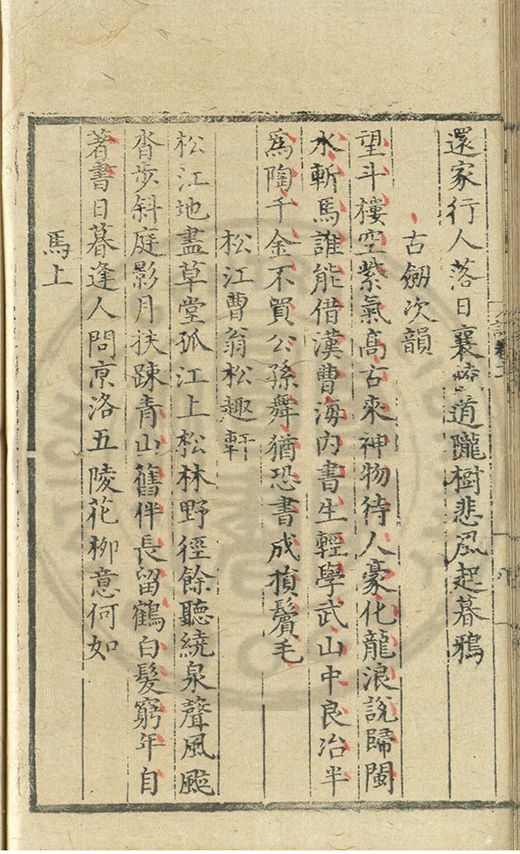 還家行人落日襄陵道隴樹悲風起暮鴉
古劒次韻
望斗樓空紫氣高古來神物待人豪化龍浪說歸閩
水斬馬誰能借漢曹海內書生輕學武山中良冶半
為陶千金不買公孫舞猶恐書成損鬢毛
松江曹翁松趣軒
松江地盡草堂孤江上松林野徑餘聽繞泉聲風颼
步斜庭影月扶疎青山舊伴長留鶴白髮窮年自
著書日暮逢人問京洛五陵花柳意何如
馬上